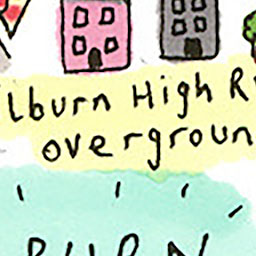 lburn High R
overgroun
BURN